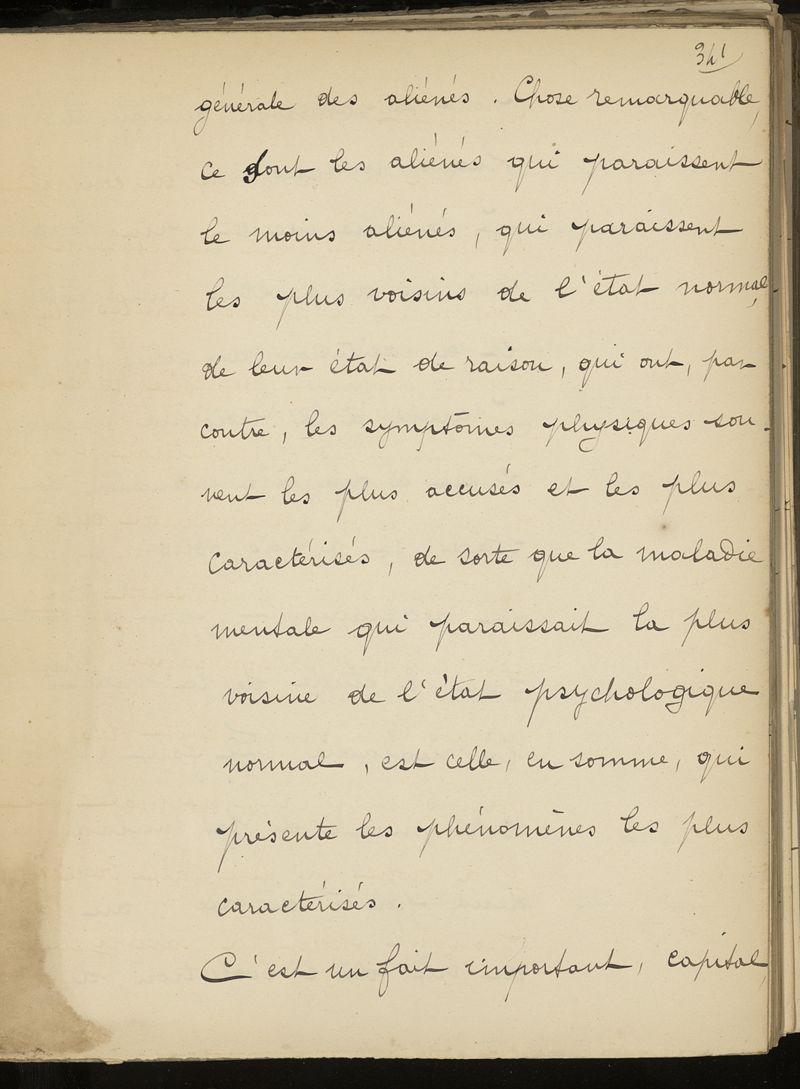 341
générale des aliénés. Chose remarquable,
ce sont les aliénés qui paraissent
le moins aliénés, qui paraissent
les plus voisins de l'état normal,
de leur état de raison, qui ont, par
contre, les symptômes physiques sou-
vent les plus accusés et les plus
caractérisés, de sorte que la maladie
mentale qui paraissait la plus
voisine de l'état psychologique
normal, est celle, en somme, qui
présente les phénomènes les plus
caractérisés.
C'est un fait important, capital,